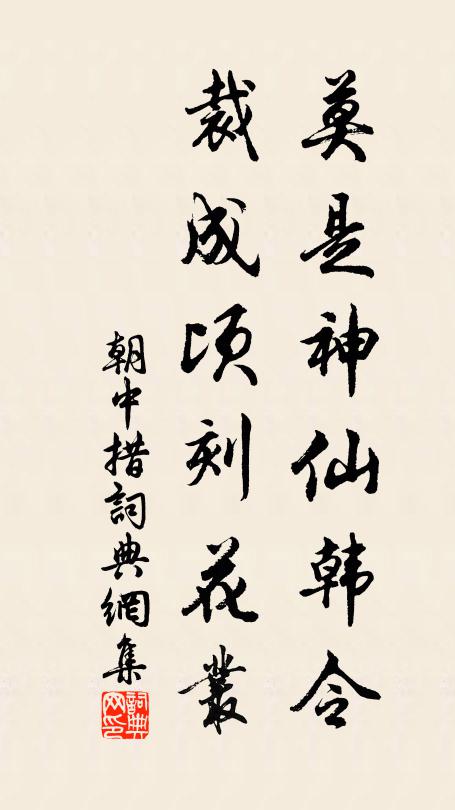 莫是神仙韩令
裁成顷刻花叢
朝中措詞典網集
詞典网印